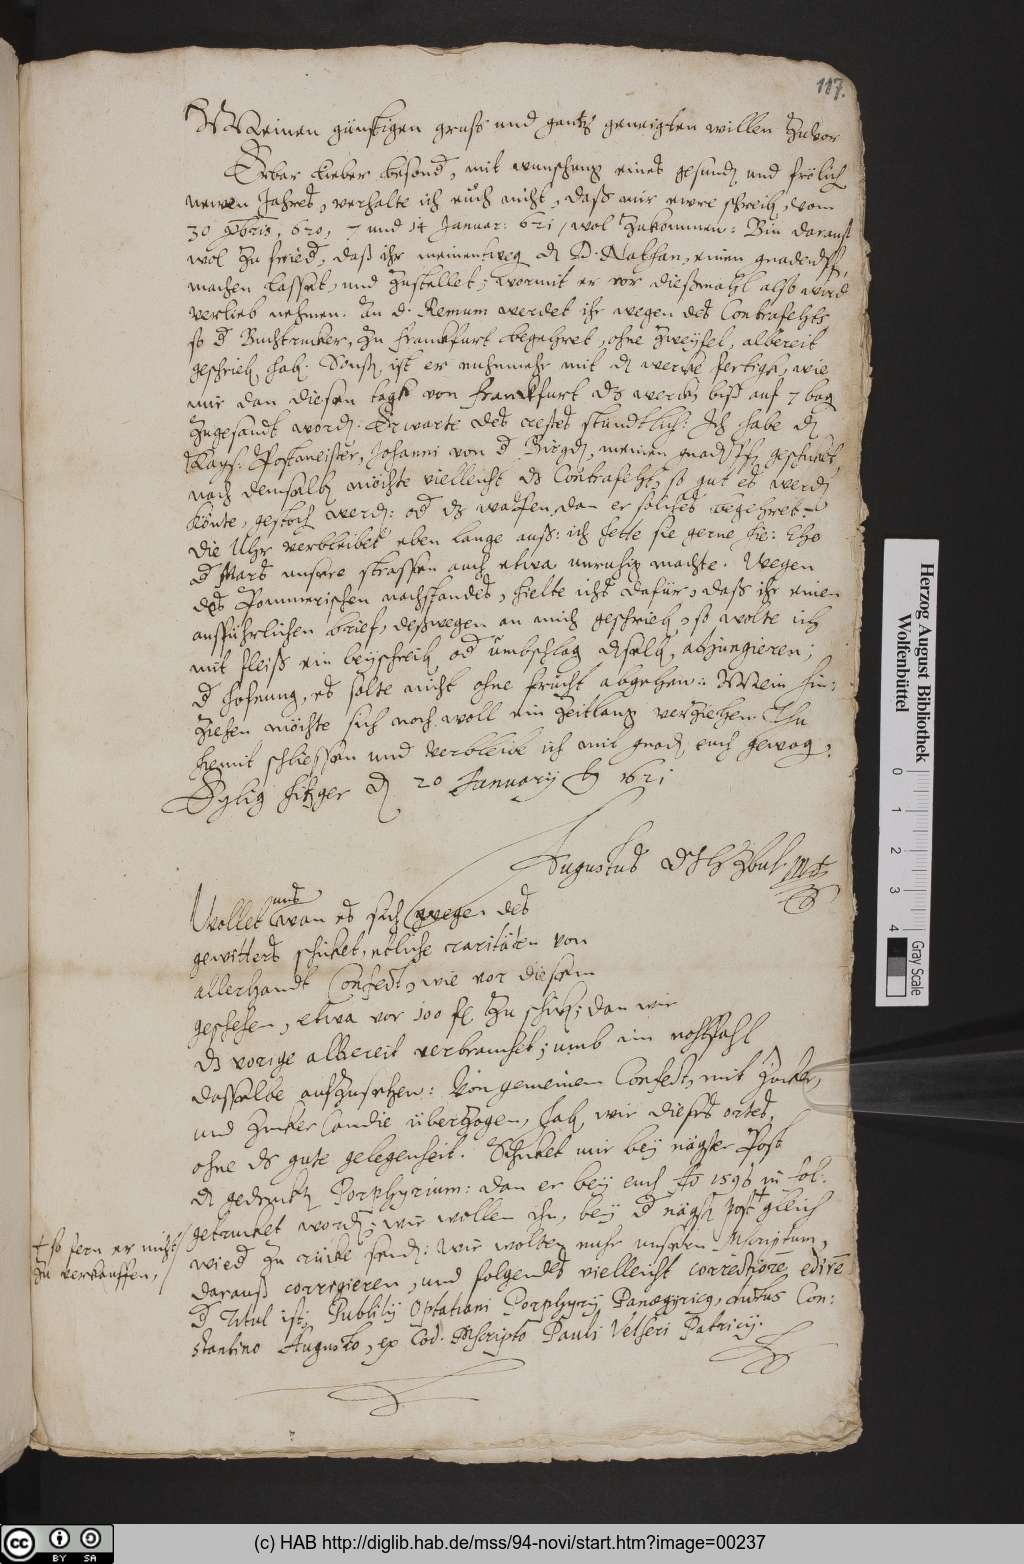 117.
Meinen günstigen grus und gantz geneigten willen zuvor
Erbar lieber besond, mit wunschung eines gesund und frölich
newen Jahres, verhalte ich euch nicht, daß mir ewre schreib, vom
30 Xbris, 620, 7 und 14 Januar: 621, wol zukommen: Bin darauf
wol zu fried, daß ihr meinentweg D. Nathan, einen
machen lasset, und zustellet; wormit er vor dießmahl also wird
verlieb nehmen. An d. Remum werdet ihr wegen des Contrafehts
so d Buchtrucker, zu Franckfurt begehret, ohne zweyfel, albereit
geschrieb hab. Sonst, ist er nuhnmehr mit d wercke fertigk, wie
mir dan diesen tagk von Franckfurt dz werck biß auf 7 bog
zugesandt word. Erwarte des restes stundtlich: Ich habe d
Kays: Postmeister, Johanni von d Birgd, meinen geschickt,
nach demselb möchte vielleicht dz Contrafeht, so gut es werd
könte, gestoch werd: od dz wapfen, dan er solches begehret.
Die Uhr verbleibet eben lange auß: ich hette sie gerne hie: Ehe
d Mars unsere strassen auch etwa unruhig machte. Wegen
des Pommerischen nachstandes, hielte ichs dafür, daß ihr einen
ausführlichen brief, deßwegen an mich geschrieb, so wolte ich
mit fleiß ein beyschreib, od ümbschlag adjungieren;
d hofnung, es solte nicht ohne frucht abgehen: Mein hin:
ziehen möchte sich noch woll ein zeitlang verziehen. Thu
hiemit schliessen und verbleibe ich mit gnad, euch gewog.
Eylig hitzger d 20 January 1621
Augustus D J H Zbul mp
Wollet uns wan es sich wegen des
gewitters schicket, etliche raritäten von
allerhandt Confect, wie vor diesem
geschehen, etwa vor 100 fl zu schick; dan wir
dz vorige albereit verbrauchet; umb im nohtfahl
dasselbe aufzusetzen: Von gemeinem Confect, mit zucker,
und zucker Candie überzogen, hab wir dieses ortes,
ohne dz gute gelegenheit. Schicket mir bey nägster Post
d gedruckt Porphyrium: dan er bey euch Ao 1595 in fol.
getrucket word; wir wollen ihn, bey d nägst post † gleich
wied zu rücke send: Wir wolten nuhr unseren Mscriptum,
darauß corrigieren, und folgendes vielleicht correctiorē edirē
D Titul ist; Publilij Optatiani Porphyrij Panegyricg, dictus Con:
stantino Augusto, ex Cod. Mscripto Pauli Velseri Patricij.
† so fern er nicht
zu verkauffen,
Herzog August Bibliothek
Wolfenbüttel
0 1 2 3 4
Gray Scale
(c) HAB http://diglib.hab.de/mss/94-novi/start.htm?image=00237
cc BY SA